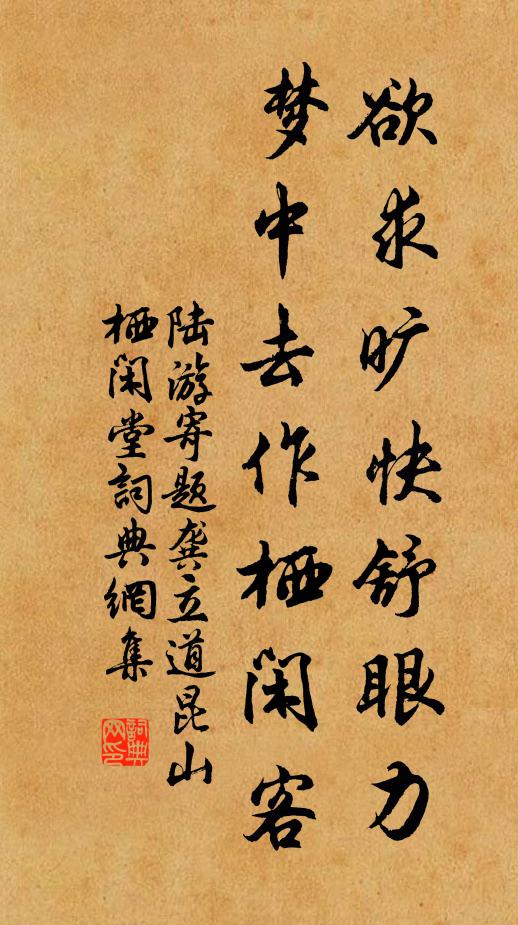 欲求旷快舒眼力
梦中去作栖闲客
陆游寄题龚立道昆山
栖闲堂词典網集
詞典网印